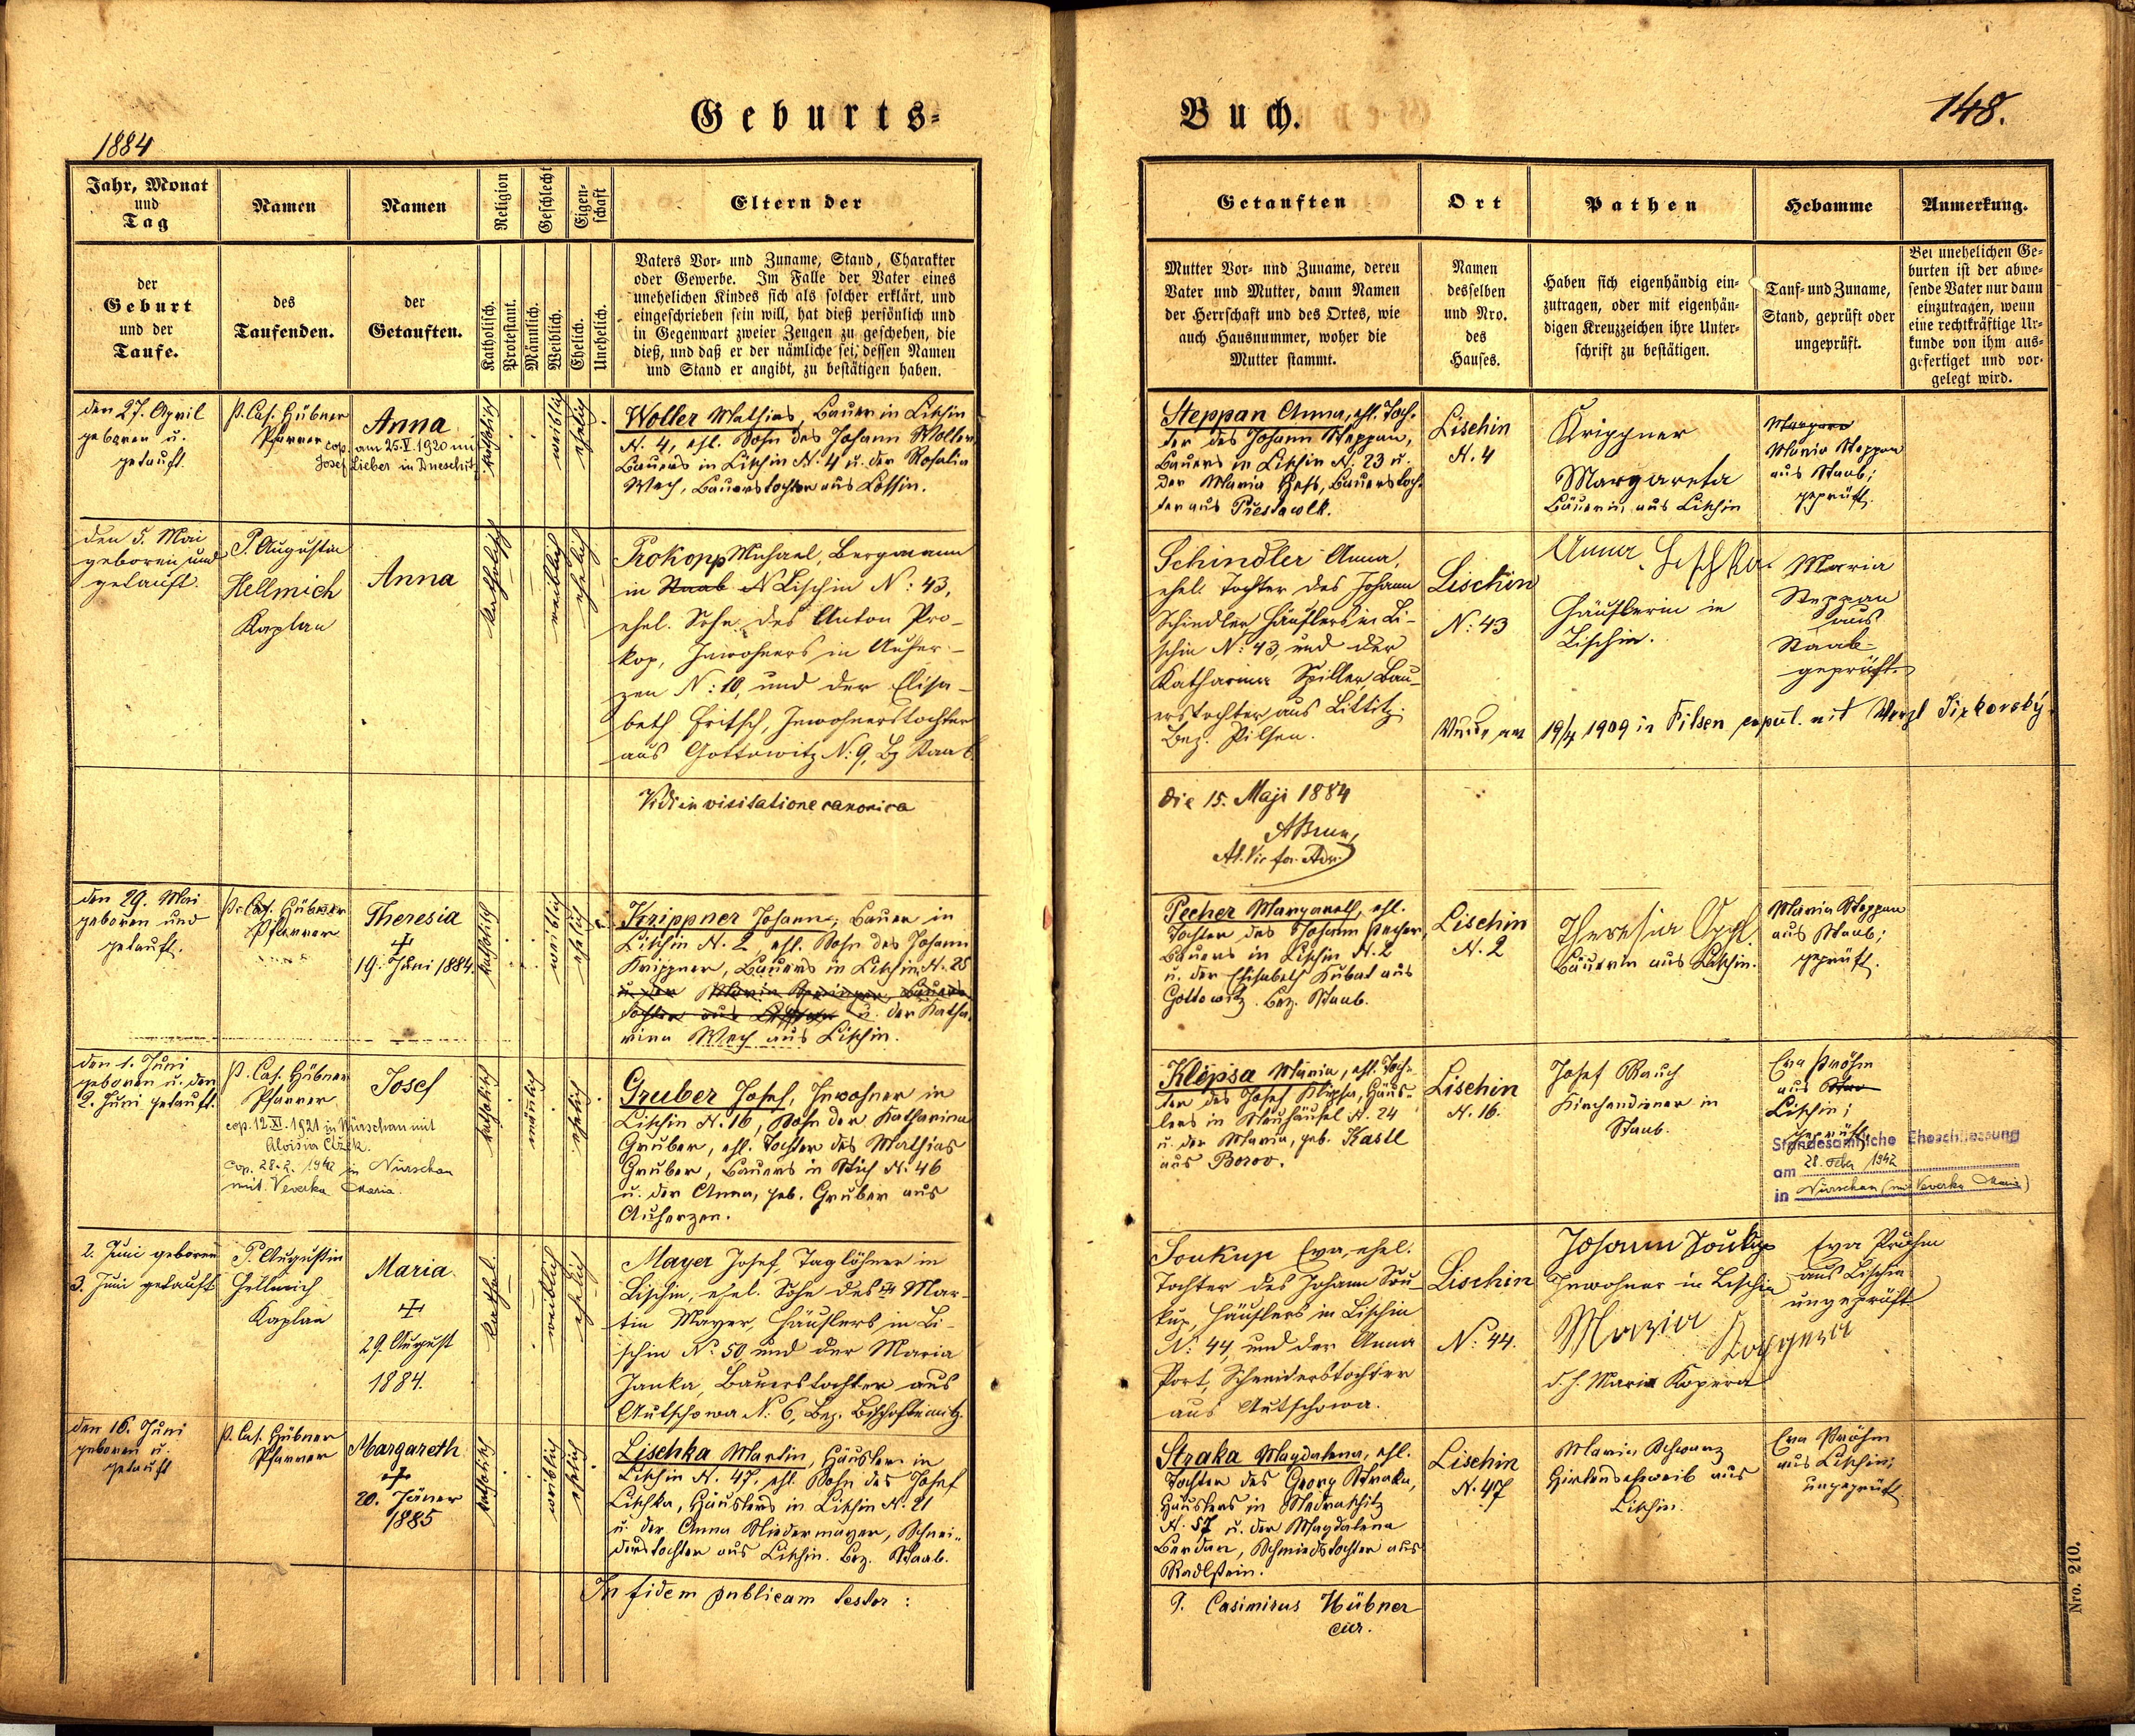 Geburts-
Buch.
148.
1884
Jahr, Monat
und
Tag
Namen
Namen
Religion
Geschlecht
Eigen-
schaft
Eltern der
der
Geburt
und der
Taufe.
des
Taufenden.
der
Getauften.
Katholisch.
Protestant.
Männlich.
Weiblich.
Ehelich.
Unehelich.
Vaters Vor- und Zuname, Stand, Charakter
oder Gewerbe. Im Falle der Vater eines
unehelichen Kindes sich als solcher erklärt, und
eingeschrieben sein will, hat dieß persönlich und
in Gegenwart zweier Zeugen zu geschehen, die
dieß, und daß er der nämliche sei, dessen Namen
und Stand er angibt, zu bestätigen haben.
Getauften
Ort
Pathen
Hebamme
Anmerkung.
Mutter Vor- und Zuname, deren
Vater und Mutter, dann Namen
der Herrschaft und des Ortes, wie
auch Hausnummer, woher die
Mutter stammt.
Namen
desselben
und Nro.
des
Hauses.
Haben sich eigenhändig ein-
zutragen, oder mit eigenhän-
digen Kreuzzeichen ihre Unter-
schrift zu bestätigen.
Tauf- und Zuname,
Stand, geprüft oder
ungeprüft.
Bei unehelichen Ge-
burten ist der abwe-
sende Vater nur dann
einzutragen, wenn
eine rechtkräftige Ur-
kunde von ihm aus-
gefertiget und vor-
gelegt wird.
den 27. April
geboren u.
getauft.
P. Cas. Hübner
Pfarrer
Anna
cop. am 25.V.1920 mit
Josef Lieber in Dneschitz
katholisch
weiblich
ehelich
Woller Mathias, Bauer in Lischin
N. 4, ehl. Sohn des Johann Woller,
Bauers in Lischin N. 4 u. der Rosalia
Wech, Bauerstochter aus Lossin.
Steppan Anna, ehl. Toch-
ter des Johann Steppan,
Bauers in Lischin N. 23 u.
der Maria Heß, Bauerstoch-
ter aus Přestawlk.
Lischin
N. 4
Krippner
Margareta
Bäuerin, aus Lischin
Maria Steppan
aus Staab;
geprüft.
den 5. Mai
geboren und
getauft.
P. Augustin
Hellmich
Kaplan
Anna
katholisch
weiblich
ehelich
Prokopp Michael, Bergmann
in Staab N Lischin N: 43,
ehel. Sohn des Anton Pro-
kop, Inwohners in Auher-
zen N: 10, und der Elisa-
beth Fritsch, Inwohnerstochter
aus Gottowitz N: 9, Bz Staab.
Schindler Anna,
ehel. Tochter des Johann
Schindler Häuslers in Li-
schin N: 43, und der
Katharina Spiller, Bau-
erstochter aus Littitz.
Bez. Pilsen.
Lischin
N: 43
Anna Lischka
Häuslerin in
Lischin.
Maria
Steppan
aus
Staab
geprüft.
Wurde am 19/4 1909 in Pilsen copul. mit Wenzl Jirkovský.
Vidi in visitatione canonica
die 15. Maji 1884
den 29. Mai
geboren und
getauft.
P. Cas. Hübner
Pfarrer
Theresia
19. Juni 1884.
katholisch
weiblich
ehelich
Krippner Johann, Bauer in
Lischin N. 2, ehl. Sohn des Johann
Krippner, Bauers in Lischin N. 25
u. der Maria Springer, Bauers-
tochter aus u. der Katha-
rina Wech aus Lischin.
Pecher Margareth, ehl.
Tochter des Johann Pecher,
Bauers in Lischin N. 2
u. der Elisabeth Kubat aus
Gottowitz. Bez. Staab.
Lischin
N. 2
Theresia
Bäuerin aus Lischin.
Maria Steppan
aus Staab;
geprüft.
den 1. Juni
geboren u. den
2. Juni getauft.
P. Cas. Hübner
Pfarrer
Josef
cop. 12.XI.1921 in Nürschan mit
Aloisia
cop. 28.2. 1942 in Nürschan
mit Veverka Maria.
katholisch
männlich
ehelich
Gruber Josef, Inwohner in
Lischin N. 16, Sohn der Katharina
Gruber, ehl. Tochter des Mathias
Gruber, Bauers in Stich N. 46
u. der Anna, geb. Gruber aus
Auherzen.
Klepsa Maria, ehl. Toch-
ter des Josef Klepsa, Häus-
lers in Neuhäusel N. 24
u. der Maria, geb. Kastl
aus Borov.
Lischin
N. 16.
Josef Rauch
Kirchendiener in
Staab.
Eva Pröhm
aus
Lischin;
geprüft.
Standesamtliche Eheschliessung
am 28. Feber 1942
in Nürschan (mit Veverka Maria)
2. Juni geboren
3. Juni getauft
P. Augustin
Hellmich
Kaplan
Maria
29. August
1884.
kathol.
weiblich
ehelich
Mayer Josef, Taglöhner in
Lischin, ehel. Sohn des Mar-
tin Mayer, Häuslers in Li-
schin No. 50 und der Maria
Janka, Bauerstochter aus
Autschowa N: 6, Bez. Bischofteinitz.
Soukup Eva, ehel.
Tochter des Johann Sou-
kup, Häuslers in Lischin
N: 44, und der Anna
Port, Schneiderstochter
aus Autschowa.
Lischin
N: 44.
Johann Soukup
Inwohner in Lischin
Maria
d. h. Maria Kopera
Eva Pröhm
aus Lischin
ungeprüft
den 16. Juni
geboren u.
getauft
P. Cas. Hübner
Pfarrer
Margareth
20. Jäner
1885
katholisch
weiblich
ehelich
Lischka Martin, Häusler in
Lischin N. 47, ehl. Sohn des Josef
Lischka, Häuslers in Lischin N. 21
u. der Anna Niedermayer, Schnei-
derstochter aus Lischin. Bez. Staab.
Straka Magdalena, ehl.
Tochter des Georg Straka,
Häuslers in Nedraschitz
N. 57 u. der Magdalena
Berdan, Schmiedstochter aus
Radlstein.
Lischin
N. 47
Maria Schwarz
Hirtenseheweib aus
Lischin.
Eva Pröhm
aus Lischin;
ungeprüft
In fidem publicam testor:
P. Casimirus Hübner
cur.
Nro. 210.